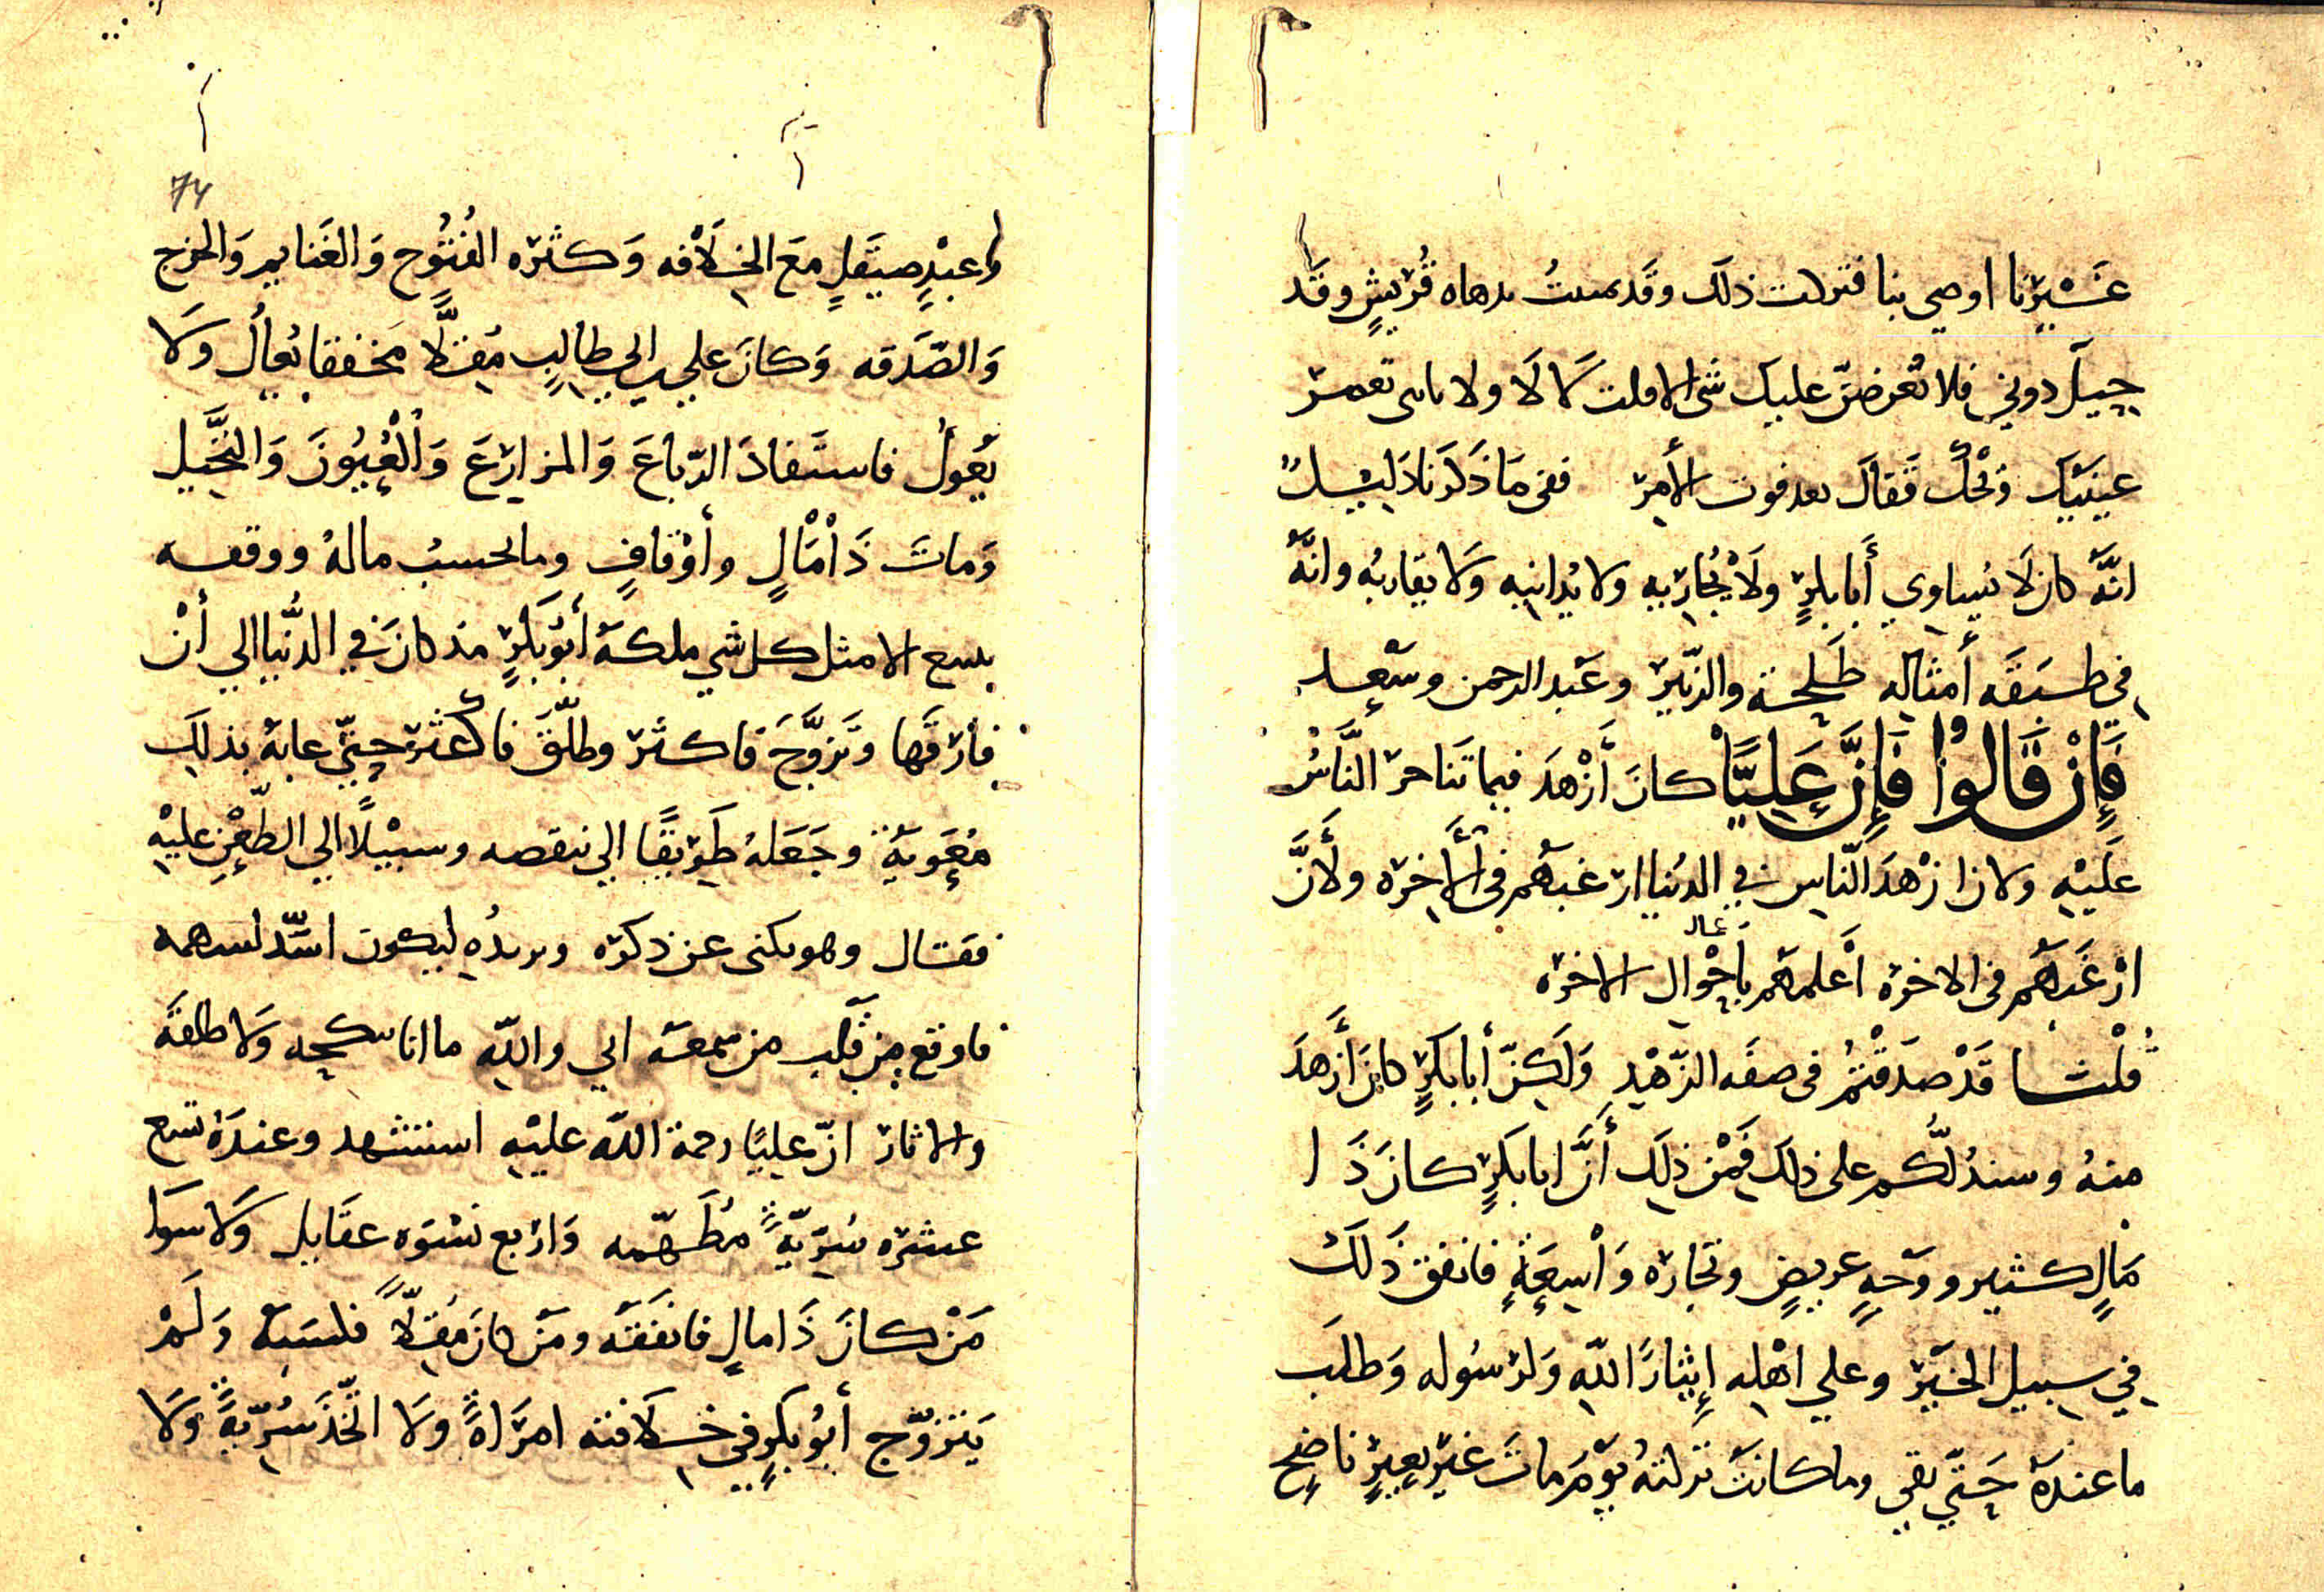 عَشِيرْنا اوصي بنا فتركت ذلك وقَد سمتُ بدهاه قُرَيشٍ وقَد
حِيلَ دوني فلا تُعرضنّ عليك شى الا قلت كَالَا ولا باس تعمر
عينَيك وَتْحُكْ فَقالَ بعد فوت الأمر ففى مَا ذَكَرْنا دَليْـل
انَّهُ كان لَا يُساوي أَبا بكرٍ ولَا يُجارِيهِ ولا يُدانيهِ وَلا يقاربُه وانَّهُ
فى طبَقَه أمثاله طَلحة والزّبير وعَبد الرحمن وسَعد
فَإِنْ قَالُوا فَإِنَّ عَلِيًّا كانَ أَزْهَدَ فيما تَناحرَ النَّاسُ
عَلَيْهِ ولان ازْهَدَ النّاسِ في الدُنيا ارْغبهُم فى الأَخِرَه ولأَنَّ
ارْغَبَهُم فى الاخرَه أَعْلمهُم بأَحْوال الاخرَه
قُلْنـا قَدْ صدَقْتُمْ فى صفَه الزّهْدِ وَلَكِنّ أبا بكرٍ كانَ أَزهدَ
منهُ وسندُلُّكُم على ذلك فَمِنْ ذلِكَ أَنَّ ابا بَكرٍ كانَ ذَا
مَالٍ كثير ووَجهٍ عريضٍ وتجارَه وَاْسِعَةٍ فانفق ذَلكَ
في سبيل الخَيْرِ وعلي اهْلِه إِيثارًا للّه وَلرَسُوله وَطلَب
ما عندَهُ حَتّي بقي وما كانتْ تركتهُ يوْمَ ماتَ غيْر بعِيرٍ ناضِح
وعبْدٍ صيقَلٍ مَعَ الخِلَافه وَكثرَه الفُتُوح وَالغَنايم وَالخرج
وَالصَّدَقه وَكانَ علي بن ابي طالِبٍ مُقِلًّا مخففا يُعالُ وَلا
يَعُولُ فاستفادَ الرّباعَ وَالمزارِعَ وَالْعُيُونَ وَالنَّخيل
وَماتَ ذَا مَالٍ وأوْقافٍ وما لحسبُ مالهُ ووقفـه
بينبع الا مثل كل شي ملكهُ أبُو بَكرٍ مذ كانَ في الدُّنيا الي أنْ
فارَقَها وتَزوَّجَ فاكثرَ وطلّقَ فاكثرَ حتّي عابهُ بذلكَ
مُعَوِيَةُ وجَعَلهُ طَرِيقًا الي تنقصه وسبيْلًا الي الطّعْنِ عليْهِ
فقـال وهو يكنى عن ذكره ويريدُه ليكون اشدّ لسهمه
فاوقع مِنْ قَلْب من سمعهُ اني واللّه ما انا بنكحه وَلا طلقه
والاثار انّ عليًا رحمة اللّه عليْهِ استشهد وعندَهُ تسع
عشرَه سُرِيّةً مُطَهّمه وَاربع نسْوَه عقايل وَلا سَوا
مَنْ كانَ ذَا مالٍ فانفَقهُ ومَنْ كانَ مُقِلّاً فكسَبهُ وَلَمْ
يَتزوّج أبُو بكرٍ في خـلَافته امرَاةً ولا اتّخَذَ سُرّيةً وَلا